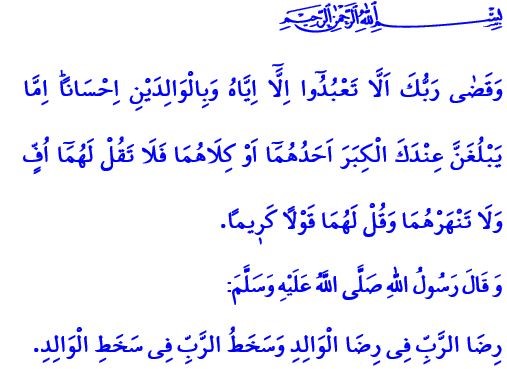 بِسْمِ اللهِ الرَّحْمٰنِ الرَّحِيمِ
وَقَضٰى رَبُّكَ اَلَّا تَعْبُدُٓوا اِلَّٓا اِيَّاهُ وَبِالْوَالِدَيْنِ اِحْسَاناًؕ اِمَّا
يَبْلُغَنَّ عِنْدَكَ الْكِبَرَ اَحَدُهُمَٓا اَوْ كِلَاهُمَا فَلَا تَقُلْ لَهُمَٓا اُفٍّ
وَلَا تَنْهَرْهُمَا وَقُلْ لَهُمَا قَوْلاً كَرٖيماً.
وَ قَالَ رَسُولُ اللهِ صَلَّى اللهُ عَلَيْهِ وَسَلَّمَ:
رِضَا الرَّبِّ فِى رِضَا الْوَالِدِ وَسَخَطُ الرَّبِّ فِى سَخَطِ الْوَالِدِ.